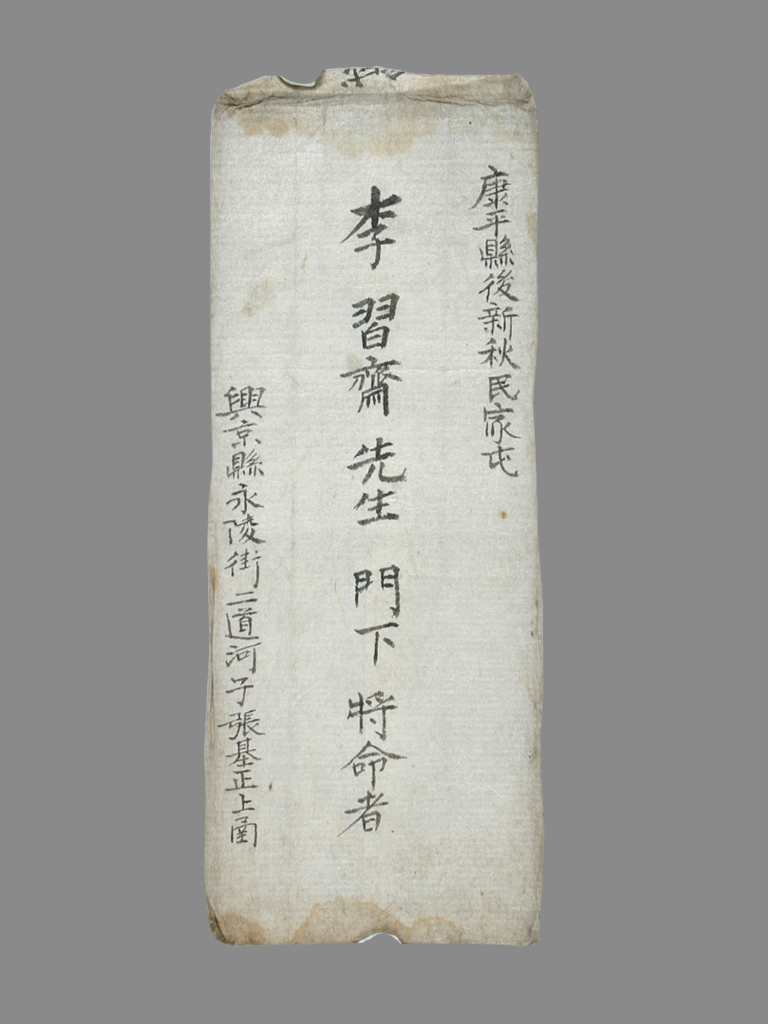 康平縣後新秋民家屯
李習齋先生 門下 将命者
興京縣永陵街二道河子張基正上函